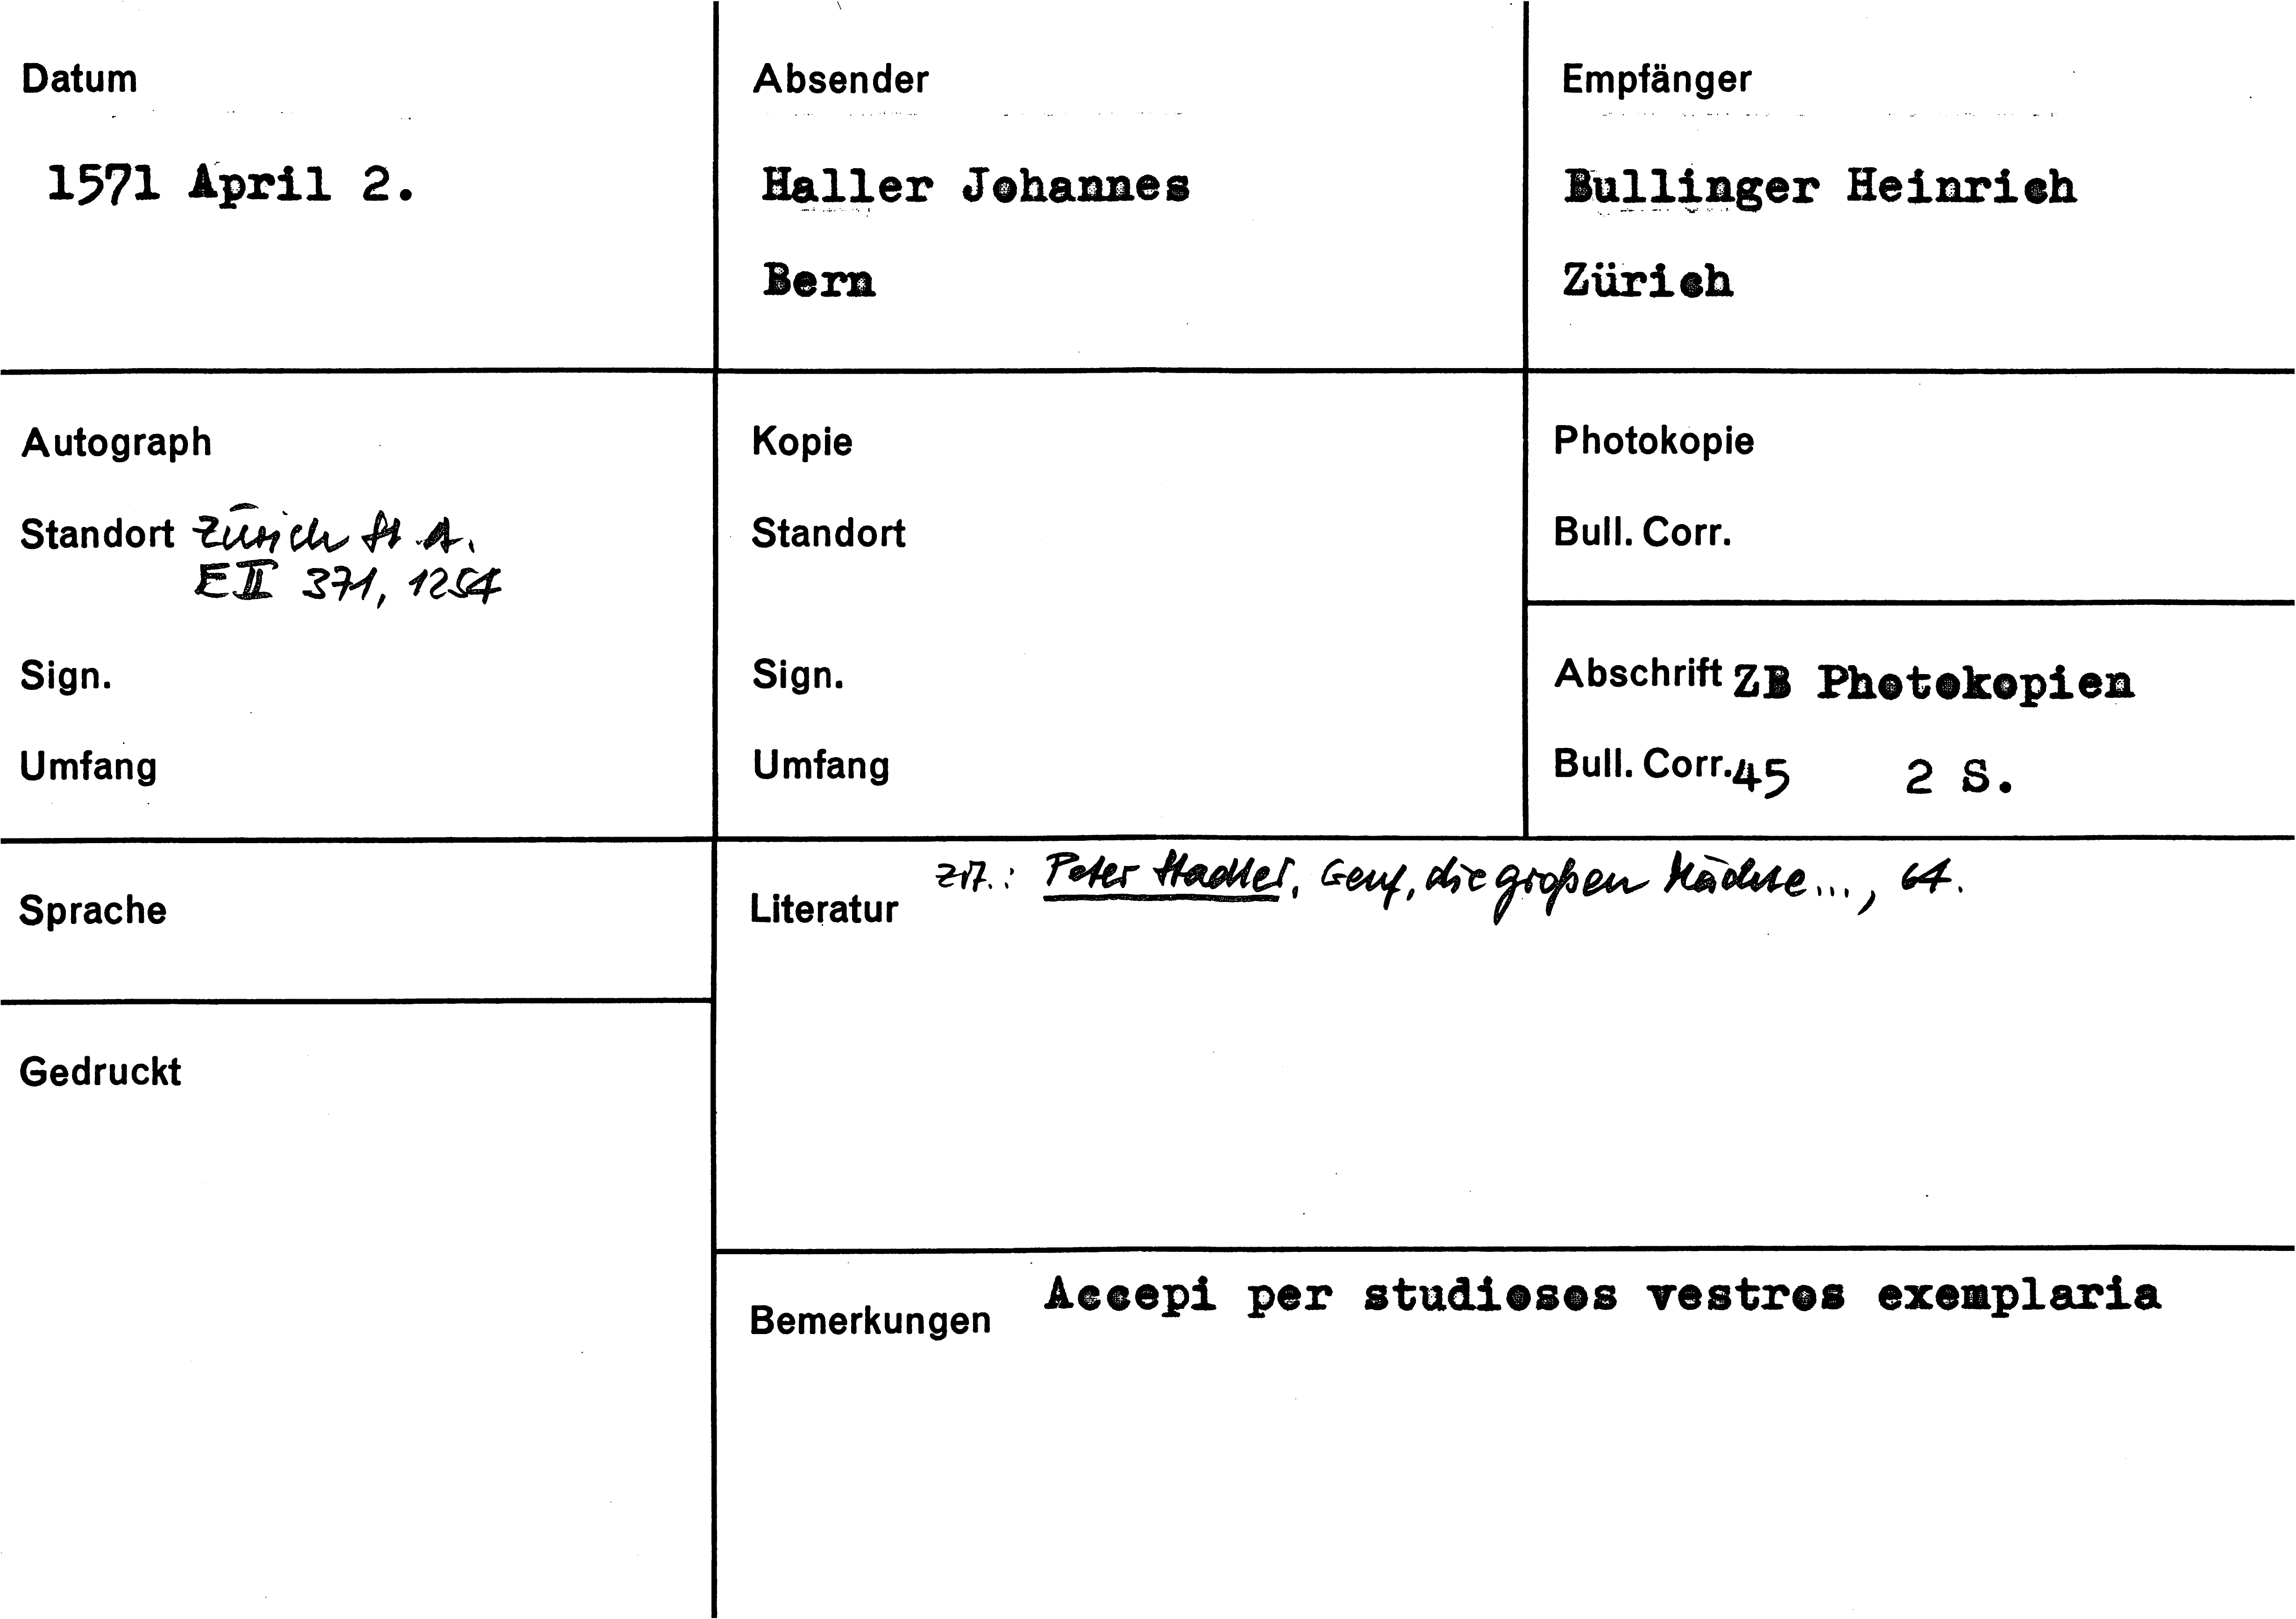 Datum
1571 April 2.
Absender
Haller Johannes
Bern
Empfänger
Bullinger Heinrich
Zürich
Autograph
Standort Zürich St. A.
E II 371, 1254
Sign.
Umfang
Kopie
Standort
Sign.
Umfang
Photokopie
Bull. Corr.
Abschrift ZB Photokopien
Bull. Corr. 45 2 S.
Sprache
Gedruckt
zit.: Peter Stadler, Genf, die großen Mächte..., 64.
Literatur
Accepi per studiosos vestros exemplaria
Bemerkungen